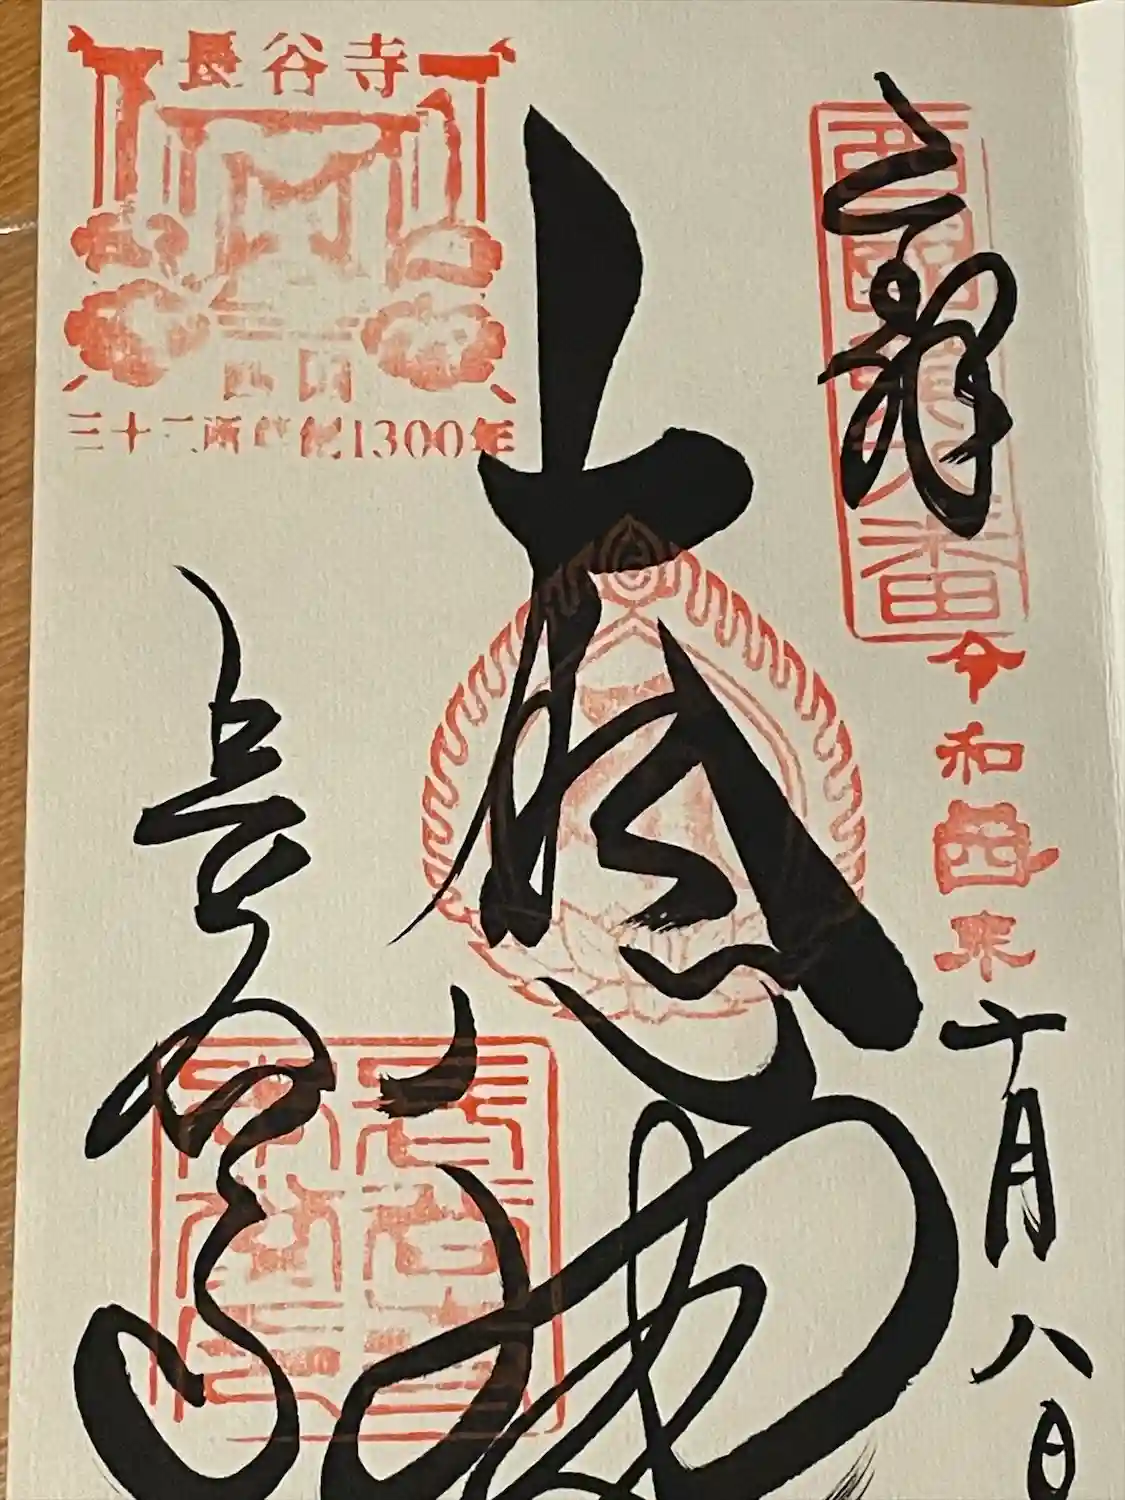 奉拝
西國第八番
令和四年
十月八日
大悲閣
長谷寺
長谷寺
西国
三十三所草創1300年